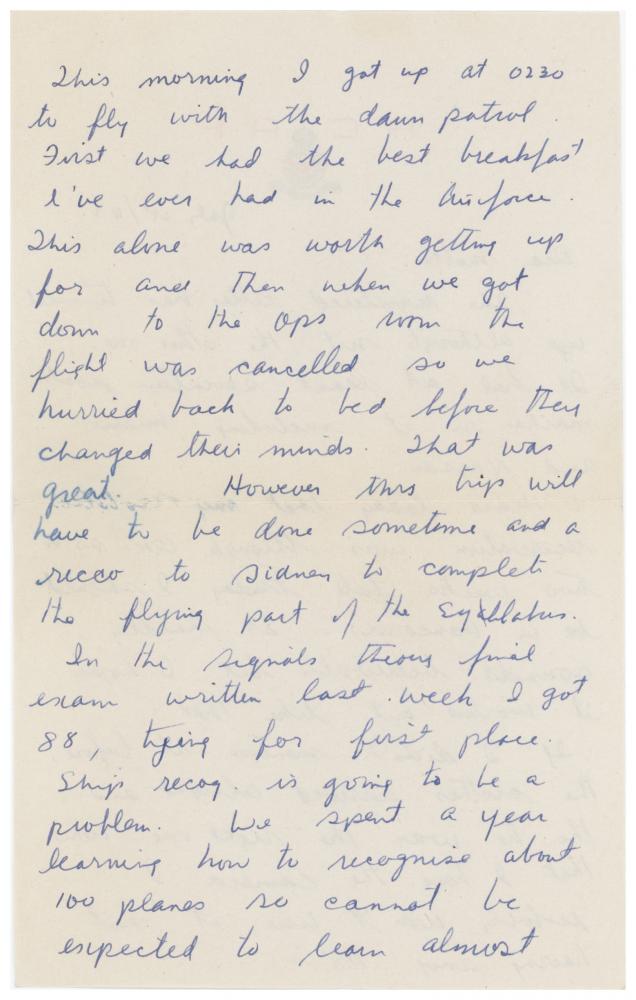 This morning I got up at 0230
to fly with the dawn patrol.
First we had the best breakfast
I've ever had in the Airforce.
This alone was worth getting up
for and then when we got
down to the ops room the
flight was cancelled so we
hurried back to bed before they
changed their minds. That was
great. However this trip will
have to be done sometime and a
recco to Sidney to complete
the flying part of the Syallabus.
In the signals theory final
exam written last week I got
88, tyeing for first place.
Ship recog. is going to be a
problem. We spent a year
learning how to recognise about
100 planes so cannot be
expected to learn almost